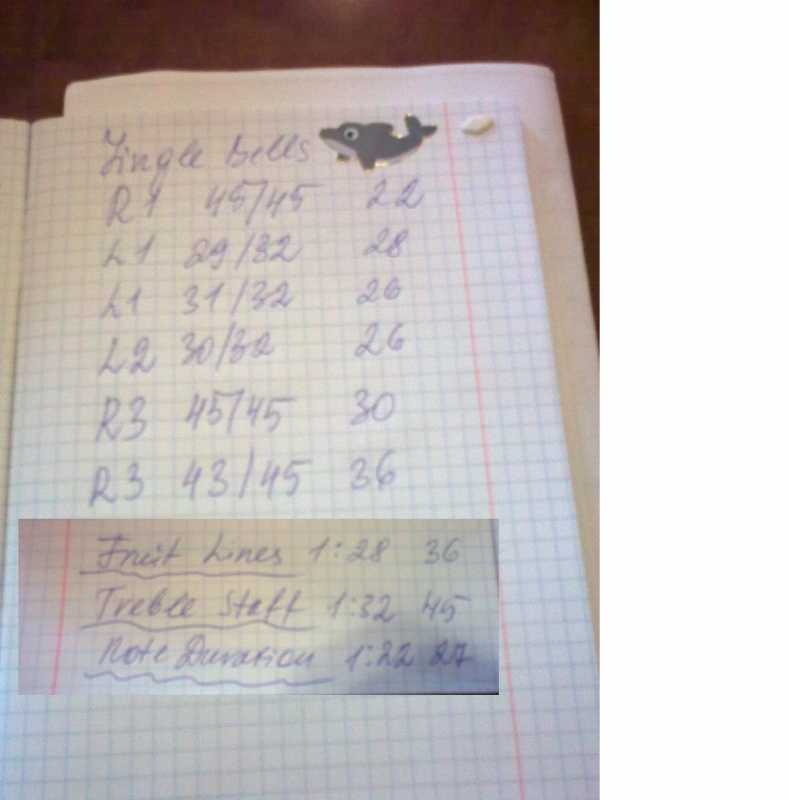 Jingle Bells
R1 45/45 22
L1 29/32 28
L1 31/32 26
L2 30/32 26
R3 45/45 30
R3 43/45 36
Fruit Lines 1:28 36
Treble Staff 1:32 45
Note Duration 1:22 27